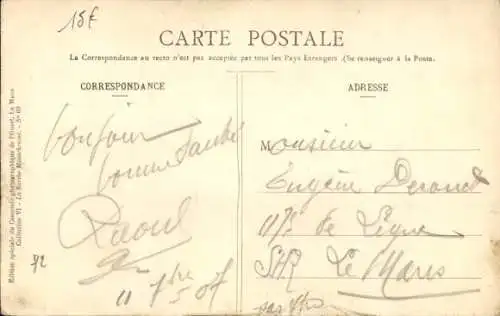 15€
CARTE POSTALE
La Correspondance au recto n'est pas acceptée par tous les Pays Etrangers. (Se renseigner à la Poste.
CORRESPONDANCE
Bonjour
bonne Santé
Raoul
11 7bre 07
72
ADRESSE
Monsieur
Eugène
de Ligne
Le Mans
Edition spéciale du Comptoir photographique de l'Ouest, Le Mans
Collection VI - La Sarthe